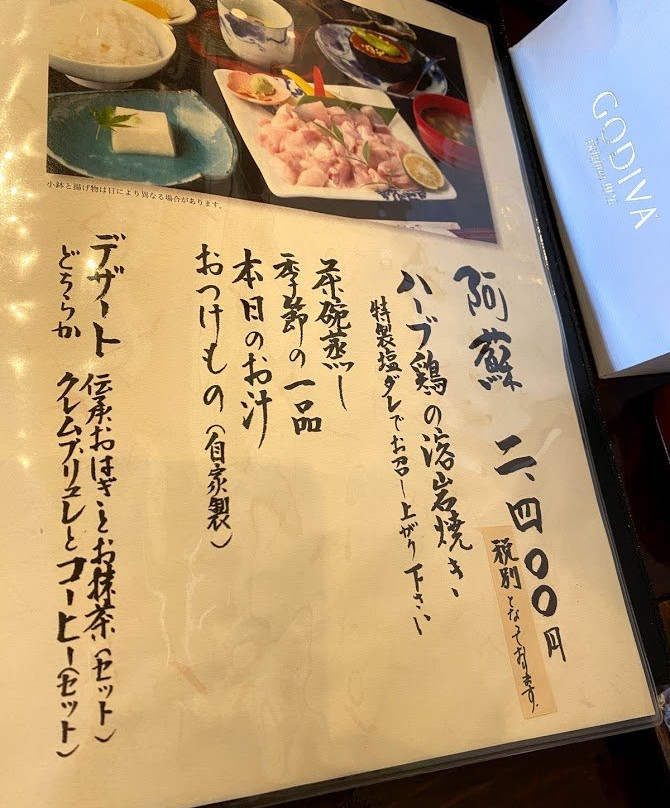 小鉢と揚げ物は日により異なる場合があります。
阿蘇 二、四〇〇円
税別となっております。
ハーブ鶏の溶岩焼き
特製塩ダレでお召し上がり下さい
茶碗蒸し
季節の一品
本日のお汁
おつけもの(自家製)
デザート
どちらか
伝承おはぎとお抹茶(セット)
クレムブリュレとコーヒー(セット)
GODIVA